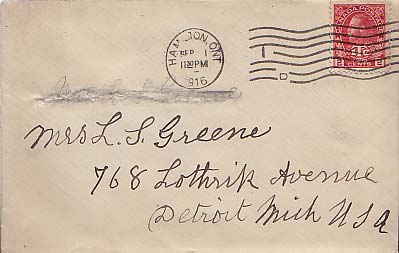 HAMILTON, ONT
SEP 1
1130PM
1916
D
CANADA POSTAGE
CENTS
Mrs L. S. Greene
768 Lothrik Avenue
Detroit Mich USA